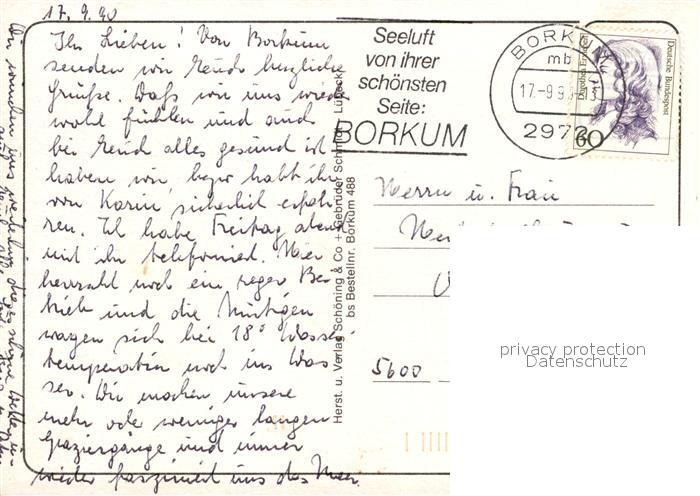 17.9.90
Ihr Lieben! Von Borkum
senden wir Euch herzliche
Grüße. Daß wir uns wieder
wohl fühlen und auch
bei Euch alles gesund ist
haben wir, bezw habt ihr
von Karin, sicherlich erfah-
ren. Ich habe Freitag abend
mit ihr telefoniert. Hier
herrscht noch ein reger Be-
trieb und die Mutigen
wagen sich bei 18° Wasser-
temperatur noch ins Was-
ser. Wir machen unsere
mehr oder weniger langen
Spaziergänge und immer
wieder fasziniert uns das Meer.
Seeluft
von ihrer
schönsten
Seite:
BORKUM
BORKUM
mb
17.-9.9
2972
Deutsche Bundespost
60
Herst. u. Verlag Schöning & Co + Gebrüder Schmidt, Lübeck
bs Bestellnr. Borkum 488
Herrn u. Frau
5600
privacy protection
Datenschutz